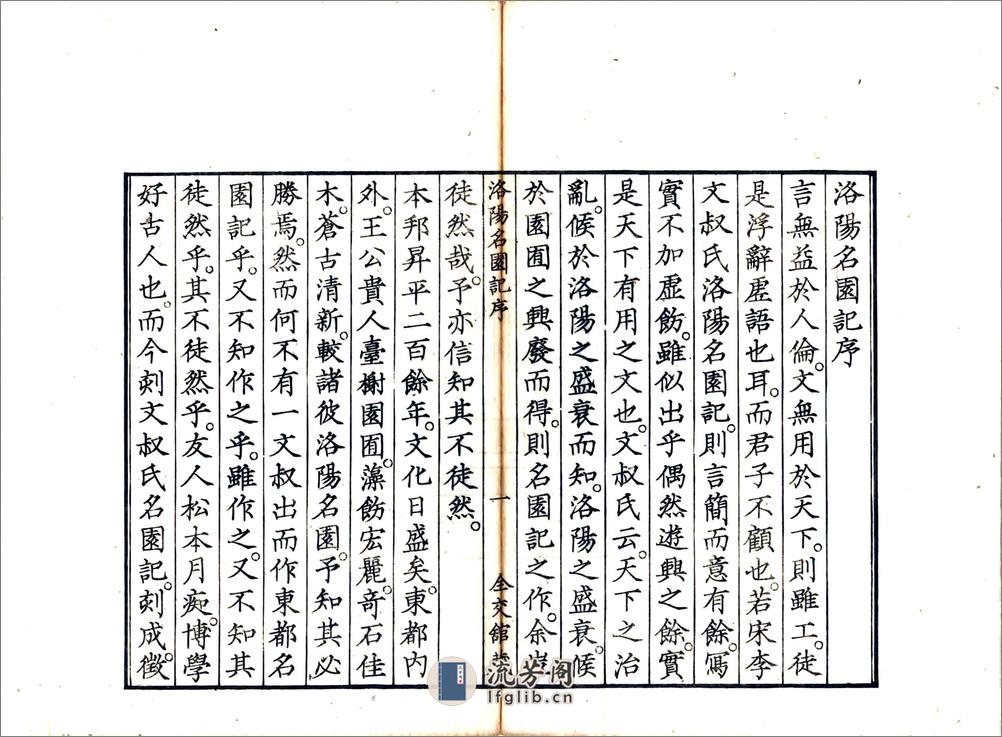 洛陽名園記序
言無益於人倫。文無用於天下。則雖工。徒
是浮辭虛語也耳。而君子不顧也。若宋李
文叔氏洛陽名園記。則言簡而意有餘。寫
實不加虛飭。雖似出乎偶然遊興之餘。實
是天下有用之文也。文叔氏云。天下之治
亂。候於洛陽之盛衰而知。洛陽之盛衰。候
於園囿之興廢而得。則名園記之作。余豈
徒然哉。予亦信知其不徒然。
洛陽名園記序 一 全交館
本邦昇平二百餘年。文化日盛矣。東都內
外。王公貴人臺榭園囿。藻飭宏麗。奇石佳
木。蒼古清新。較諸彼洛陽名園。予知其必
勝焉。然而何不有一文叔出而作東都名
園記乎。又不知作之乎。雖作之。又不知其
徒然乎。其不徒然乎。友人松本月痴。博學
好古人也。而今刻文叔氏名園記。刻成。徵
流芳阁
lfglib.cn